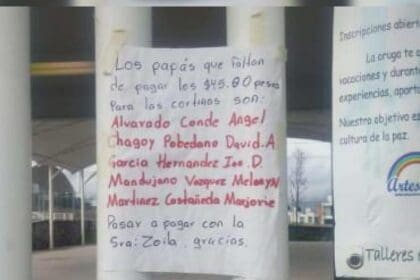 Los papás que faltan
de pagar los $45.80 pesos
Para las cortinas son:
Alvarado Conde Angel
Chagoy Pobedano David. A.
Garcia Hernandez Ian. D.
Mandujano Vazquez Melany N
Martinez Castañeda Marjorie
Pasar a pagar con la
Sra: Zoila, gracias.
Inscripciones abier
La oruga te a
vacaciones y durant
experiencias, aporta
Nuestro objetivo es
cultura de la paz.
Artes
Talleres